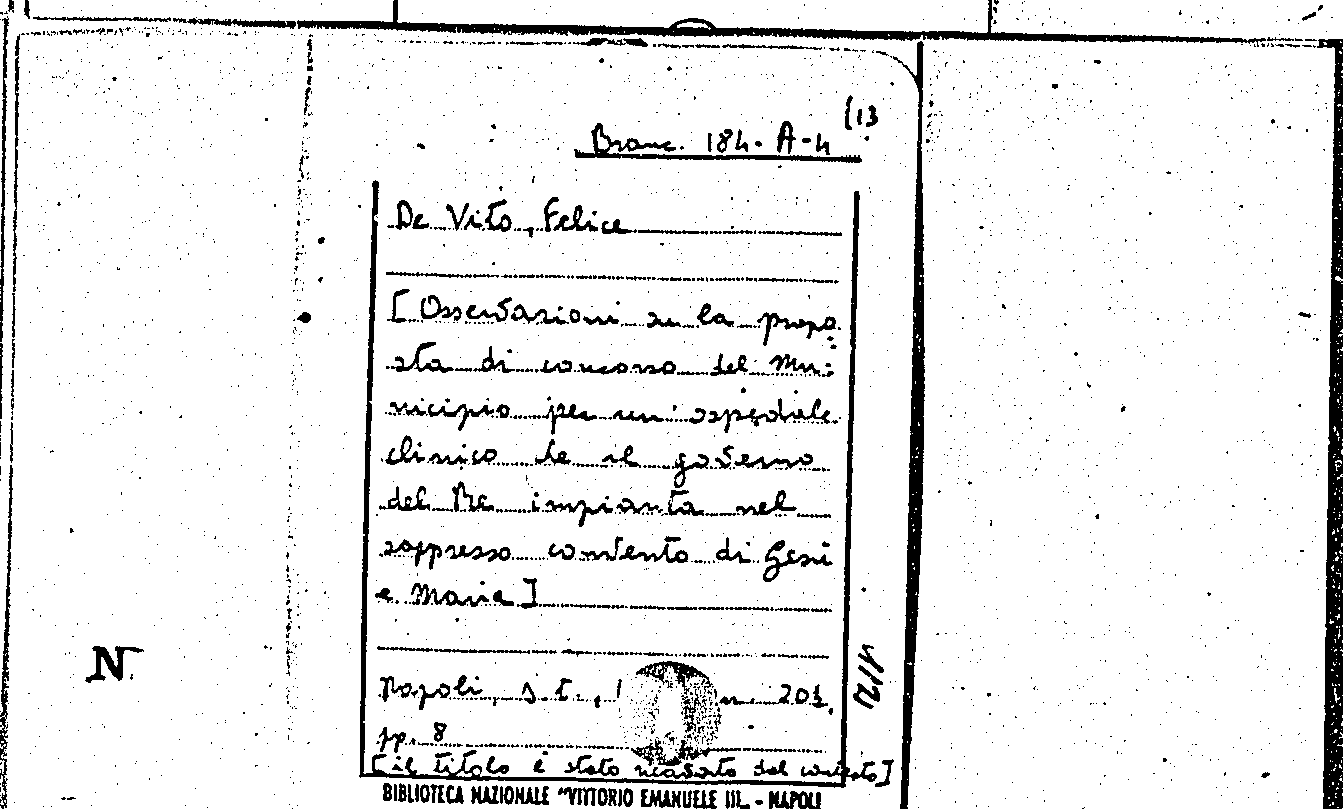 (13
Branc. 184. A-4
De Vito, Felice
[Osservazioni su la propo
sta di concorso del Mu:
nicipio per un' ospedale
clinico che il governo
del Re impianta nel
soppresso convento di Gesù
e Maria]
Napoli, s.t., 1 in. 20½,
pp. 8
[il titolo è stato ricavato dal contesto]
BIBLIOTECA NAZIONALE "VITTORIO EMANUELE III„ - NAPOLI
N